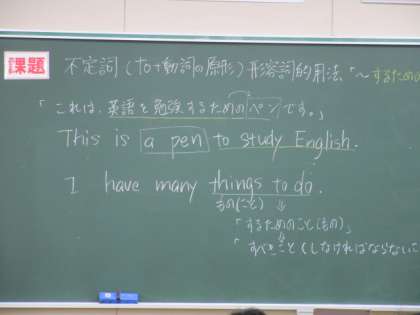 課題
不定詞(to+動詞の原形)形容詞的用法「~するための
「これは、英語を勉強するためのペンです。」
This is a pen to study English.
I have many things to do.
もの(こと)
「するためのこと(もの)」
「すべきこと(しなければならないこ